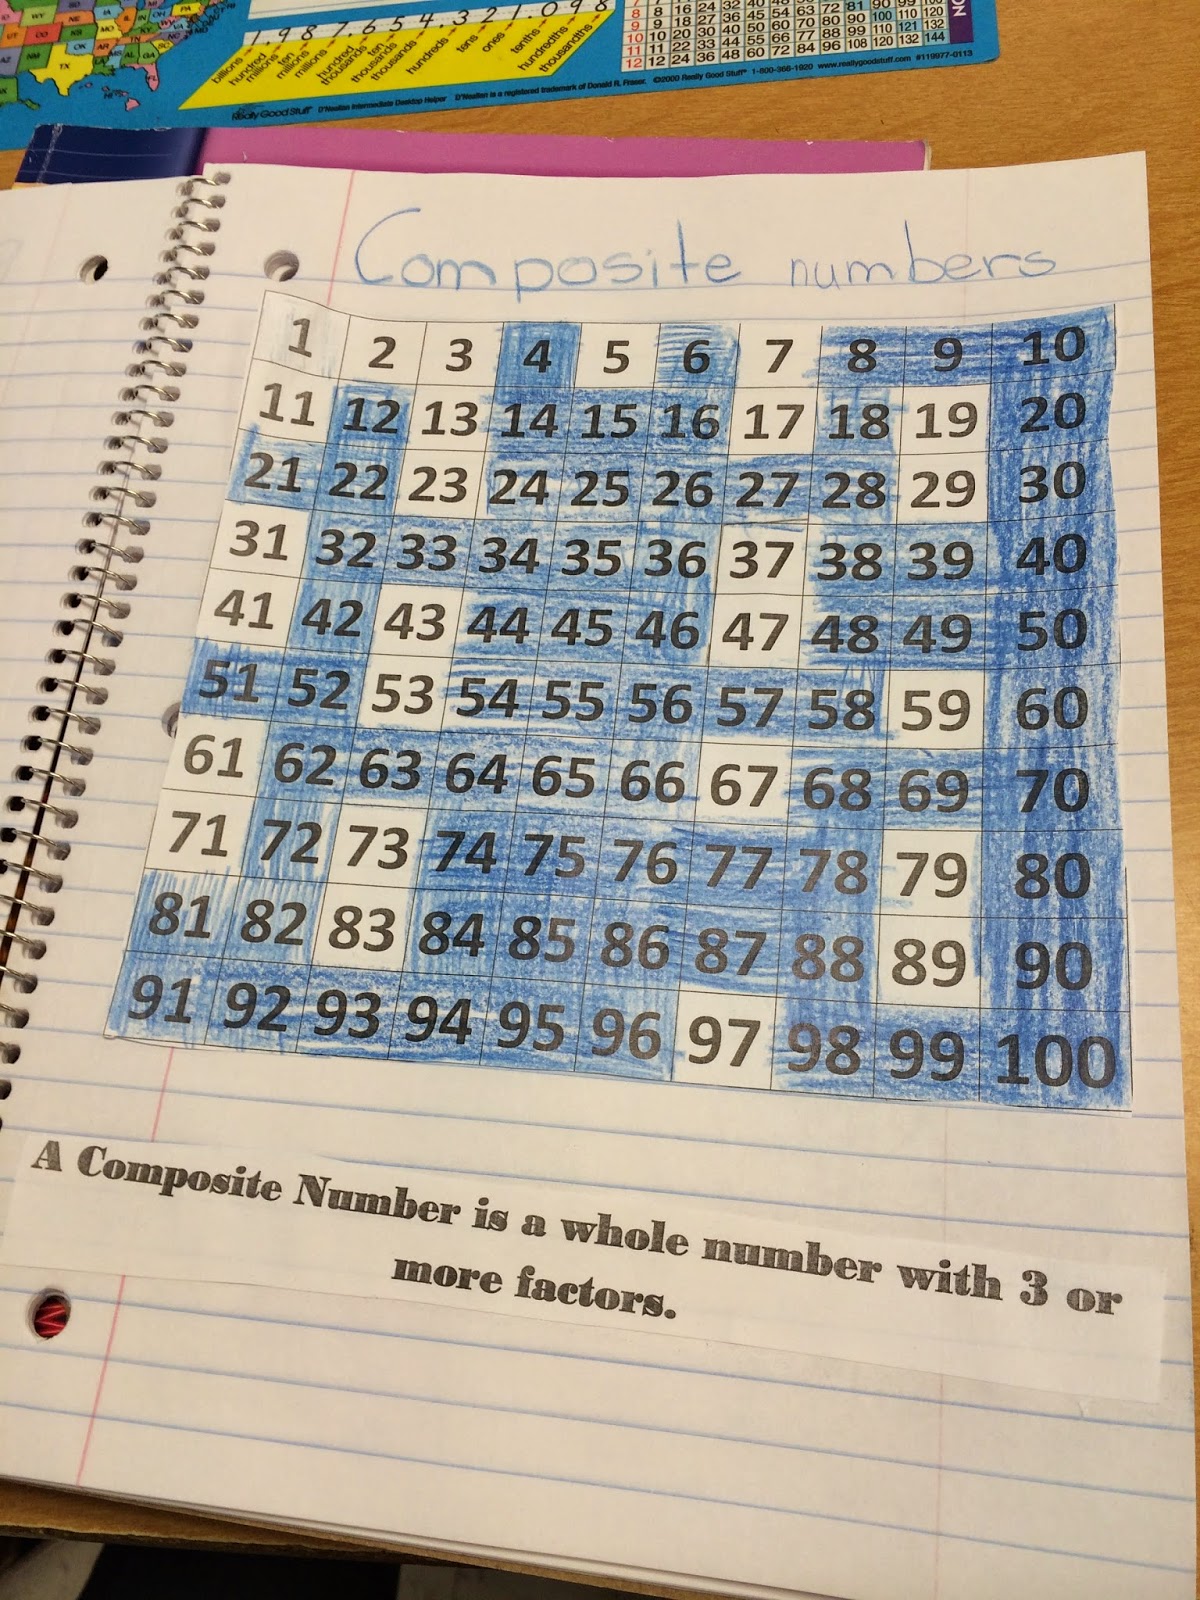 1 9 8 7 6 5 4 3 2 1 . 0 9 8
billions
hundred millions
ten millions
millions
hundred thousands
ten thousands
thousands
hundreds
tens
ones
tenths
hundredths
thousandths
Really Good Stuff® D'Nealian Intermediate Desktop Helper D'Nealian is a registered trademark of Donald R. Fraser. ©2000 Really Good Stuff® 1-800-366-1920 www.reallygoodstuff.com #119977-0113
9 18 27 36 45 54 63 72 81 90 99
10 20 30 40 50 60 70 80 90 100 110 120
11 22 33 44 55 66 77 88 99 110 121 132
12 12 24 36 48 60 72 84 96 108 120 132 144
TX
Composite numbers
1 2 3 4 5 6 7 8 9 10
11 12 13 14 15 16 17 18 19 20
21 22 23 24 25 26 27 28 29 30
31 32 33 34 35 36 37 38 39 40
41 42 43 44 45 46 47 48 49 50
51 52 53 54 55 56 57 58 59 60
61 62 63 64 65 66 67 68 69 70
71 72 73 74 75 76 77 78 79 80
81 82 83 84 85 86 87 88 89 90
91 92 93 94 95 96 97 98 99 100
A Composite Number is a whole number with 3 or
more factors.